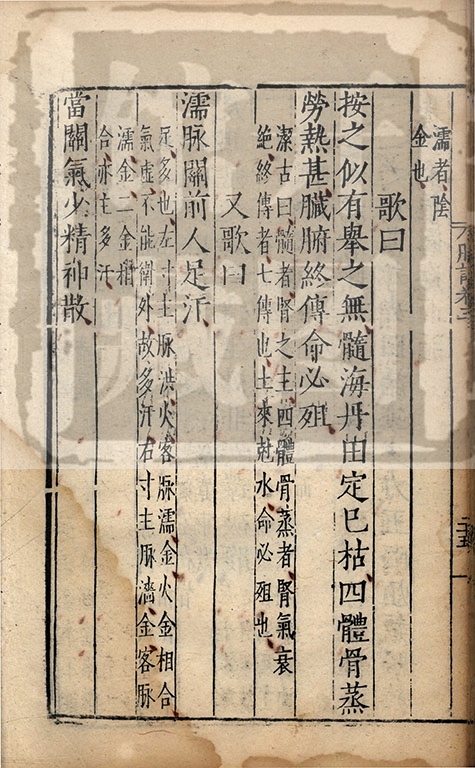 濡者陰
金也
歌曰
按之似有舉之無髓海丹田定已枯四體骨蒸
勞熱甚臟腑終傳命必殂
潔古曰髓者腎之主四體骨蒸者腎氣衰
絶終傳者七傳也土來尅水命必殂也
又歌曰
濡脉關前人足汗
足多也左寸主脉洪火客脉濡金火金相合
氣虛不能衛外故多汗右寸主脉濇金客脉
濡金二金相
合亦主多汗
當關氣少精神散